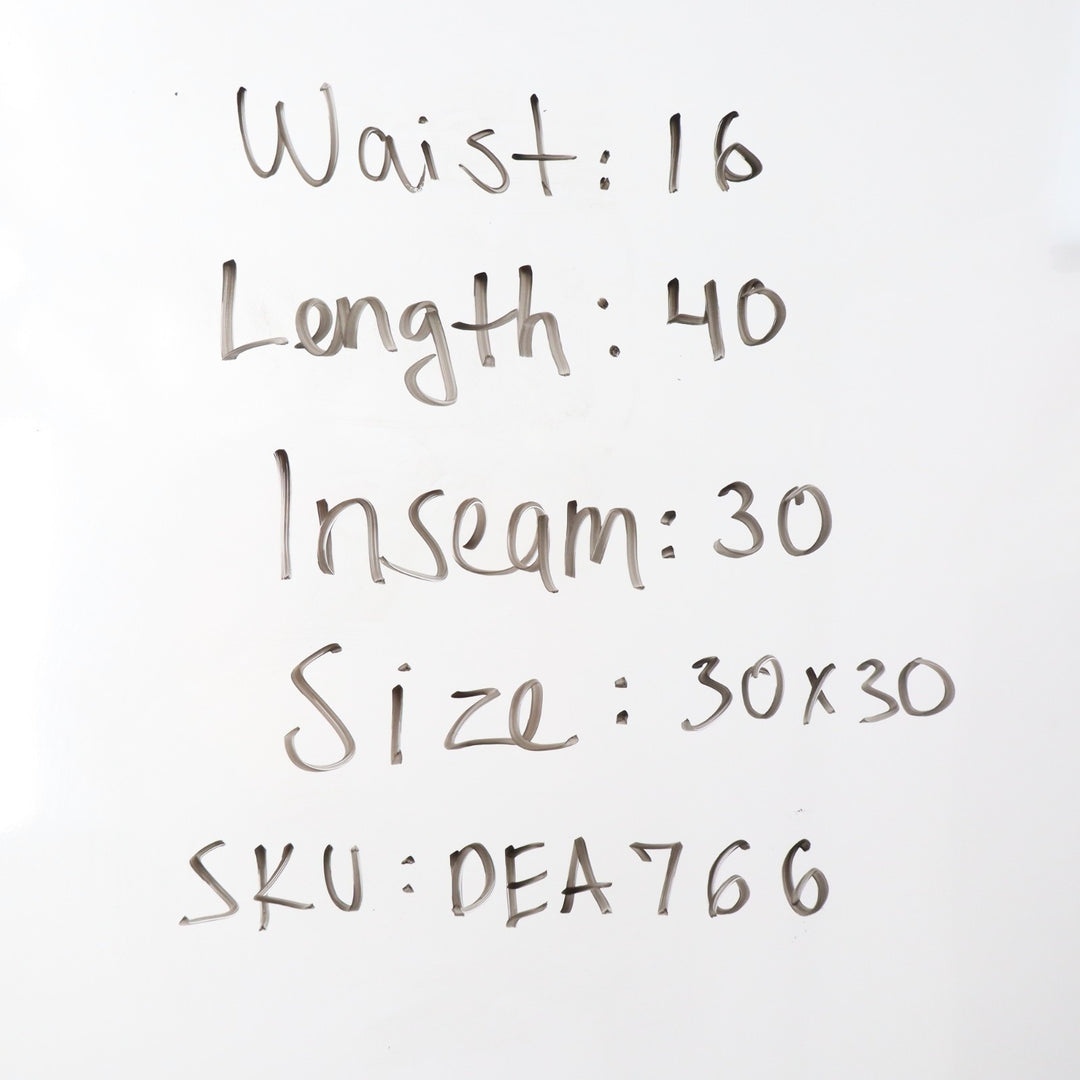 Waist: 16
Length: 40
Inseam: 30
Size: 30x30
SKU: DEA766